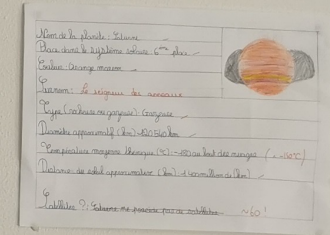 Nom de la planète : Saturne
Place dans le système solaire : 6ème place
Couleur : Orange marron
Surnom : le seigneur des anneaux
Type (rocheuse ou gazeuse) : Gazeuse
Diamètre approximatif (km) : 120 540 km
Température moyenne théorique (°C) : -180 au haut des nuages (-140°C)
Distance du soleil approximative (km) : 1 400 million de (km)
Satellites ? : Saturne ne possède pas de satellites. ~60 !